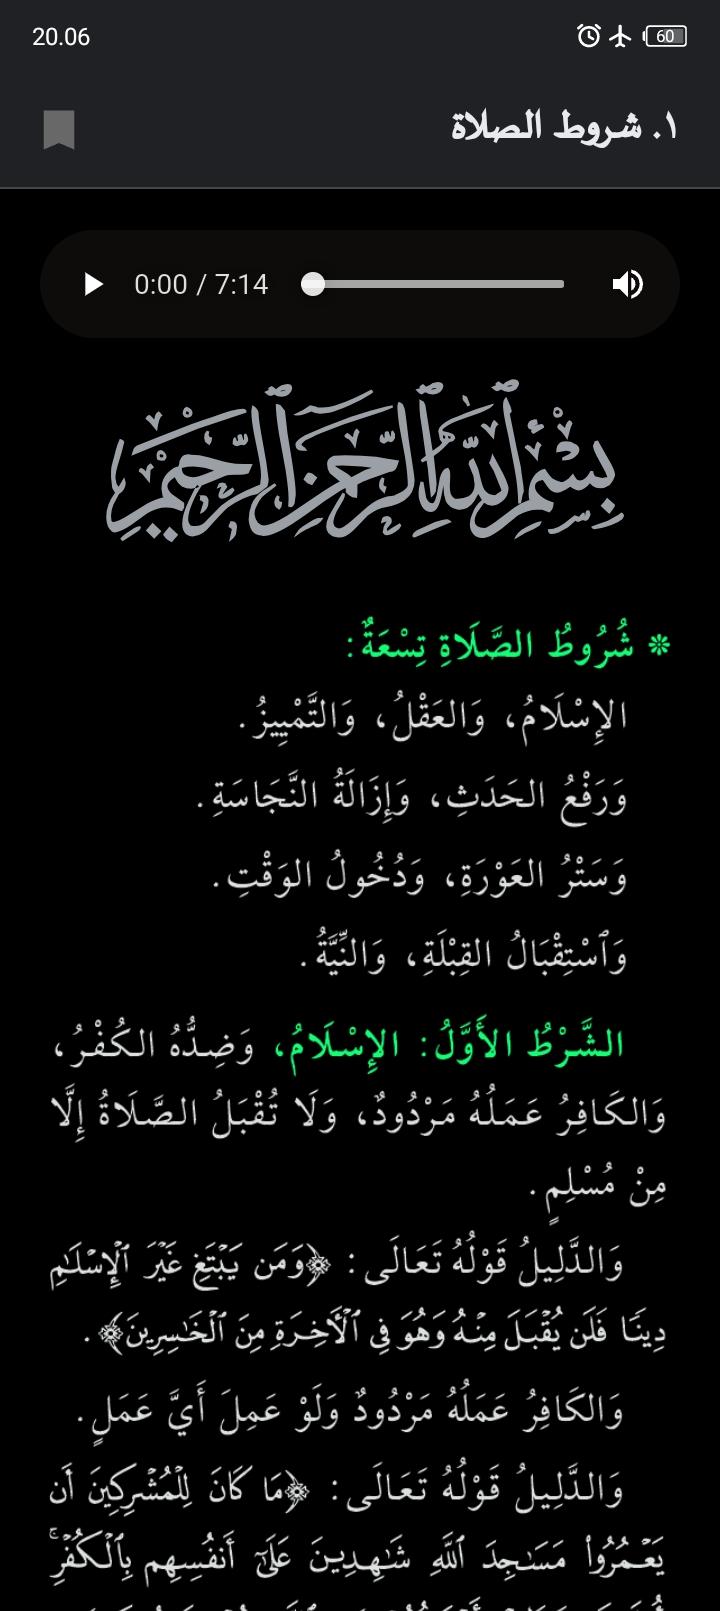 20.06
60
١. شروط الصلاة
0:00 / 7:14
بِسْمِ ٱللَّهِ ٱلرَّحْمَٰنِ ٱلرَّحِيمِ
❊ شُرُوطُ الصَّلَاةِ تِسْعَةٌ:
الإِسْلَامُ، وَالعَقْلُ، وَالتَّمْيِيزُ.
وَرَفْعُ الحَدَثِ، وَإِزَالَةُ النَّجَاسَةِ.
وَسَتْرُ العَوْرَةِ، وَدُخُولُ الوَقْتِ.
وَٱسْتِقْبَالُ القِبْلَةِ، وَالنِّيَّةُ.
الشَّرْطُ الأَوَّلُ: الإِسْلَامُ، وَضِدُّهُ الكُفْرُ،
وَالكَافِرُ عَمَلُهُ مَرْدُودٌ، وَلَا تُقْبَلُ الصَّلَاةُ إِلَّا
مِنْ مُسْلِمٍ.
وَالدَّلِيلُ قَوْلُهُ تَعَالَى: ﴿وَمَن يَبْتَغِ غَيْرَ ٱلْإِسْلَٰمِ
دِينًا فَلَن يُقْبَلَ مِنْهُ وَهُوَ فِي ٱلْأَخِرَةِ مِنَ ٱلْخَٰسِرِينَ﴾.
وَالكَافِرُ عَمَلُهُ مَرْدُودٌ وَلَوْ عَمِلَ أَيَّ عَمَلٍ.
وَالدَّلِيلُ قَوْلُهُ تَعَالَى: ﴿مَا كَانَ لِلْمُشْرِكِينَ أَن
يَعْمُرُوا۟ مَسَٰجِدَ ٱللَّهِ شَٰهِدِينَ عَلَىٰٓ أَنفُسِهِم بِٱلْكُفْرِۚ